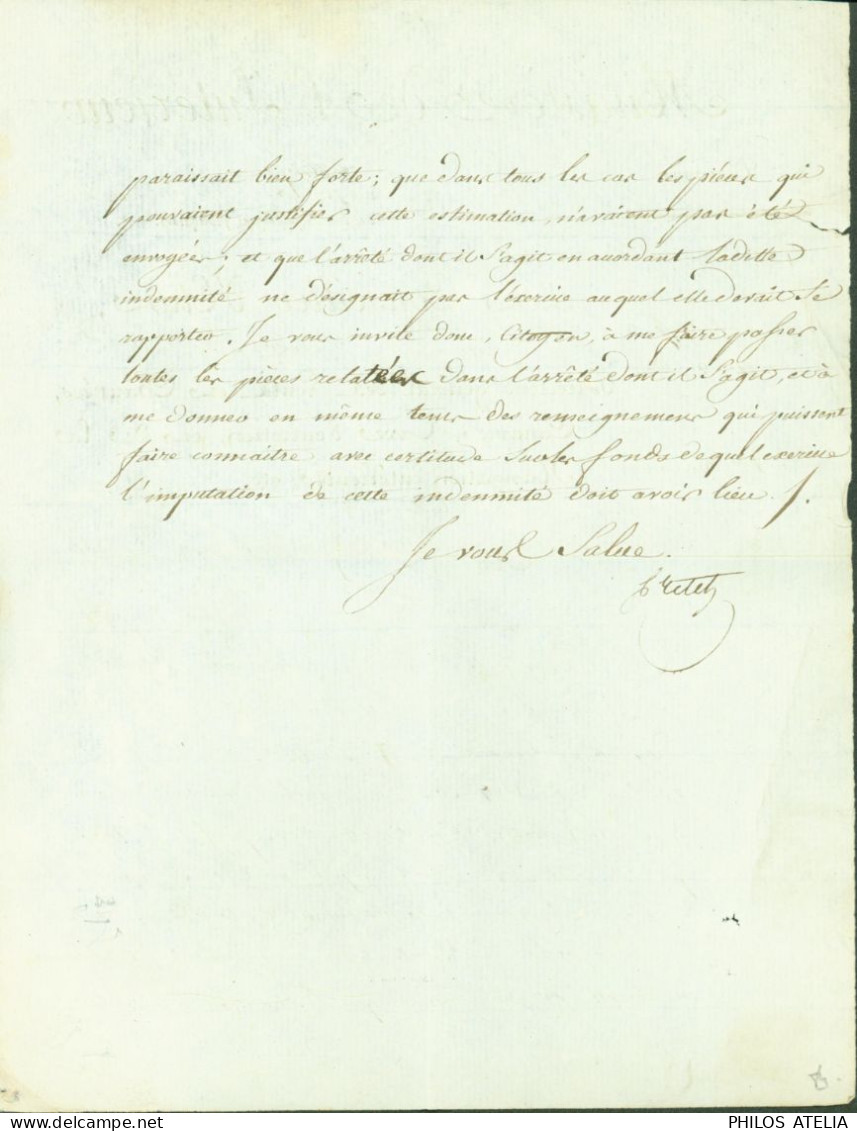 paraissait bien forte; que dans tous les cas les pièces qui
pouvaient justifier cette estimation, n'avaient pas été
envoyées; et que l'arrêté dont il s'agit en accordant ladite
indemnité ne désignait pas l'éxercice auquel elle devait se
rapporter. Je vous invite donc, Citoyen, à me faire passer
toutes les pièces relatées dans l'arrêté dont il s'agit, et à
me donner en même tems des renseignemens qui puissent
faire connaitre avec certitude sur les fonds de quel exercice
l'imputation de cette indemnité doit avoir lieu /.
Je vous Salue.
Cretet
PHILOS ATELIA